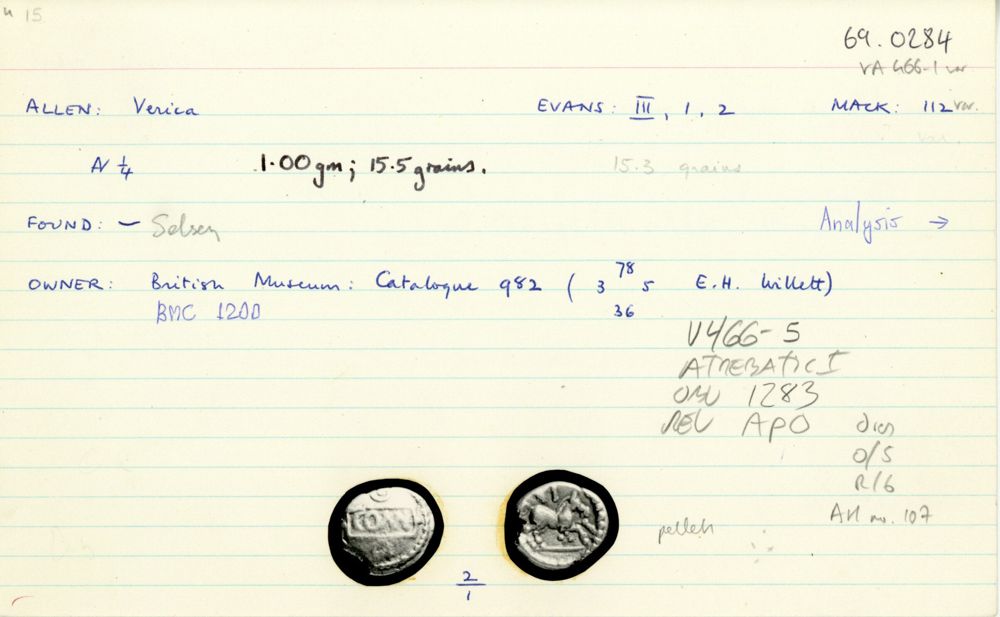 15
69.0284
VA 466-1 var
ALLEN: Verica EVANS: III, 1, 2 MACK: 112 var.
var.
N 1/4 1.00 gm; 15.5 grains. 15.3 grains
FOUND: – Selsey Analysis →
OWNER: British Museum: Catalogue 982 ( 3 78/36 5 E.H. Willett)
BMC 1200
V466-5
ATREBATIC I
OBV 1283
REV APO dies
O/5
R/6
AH no. 107
COMF
pellets
2/1